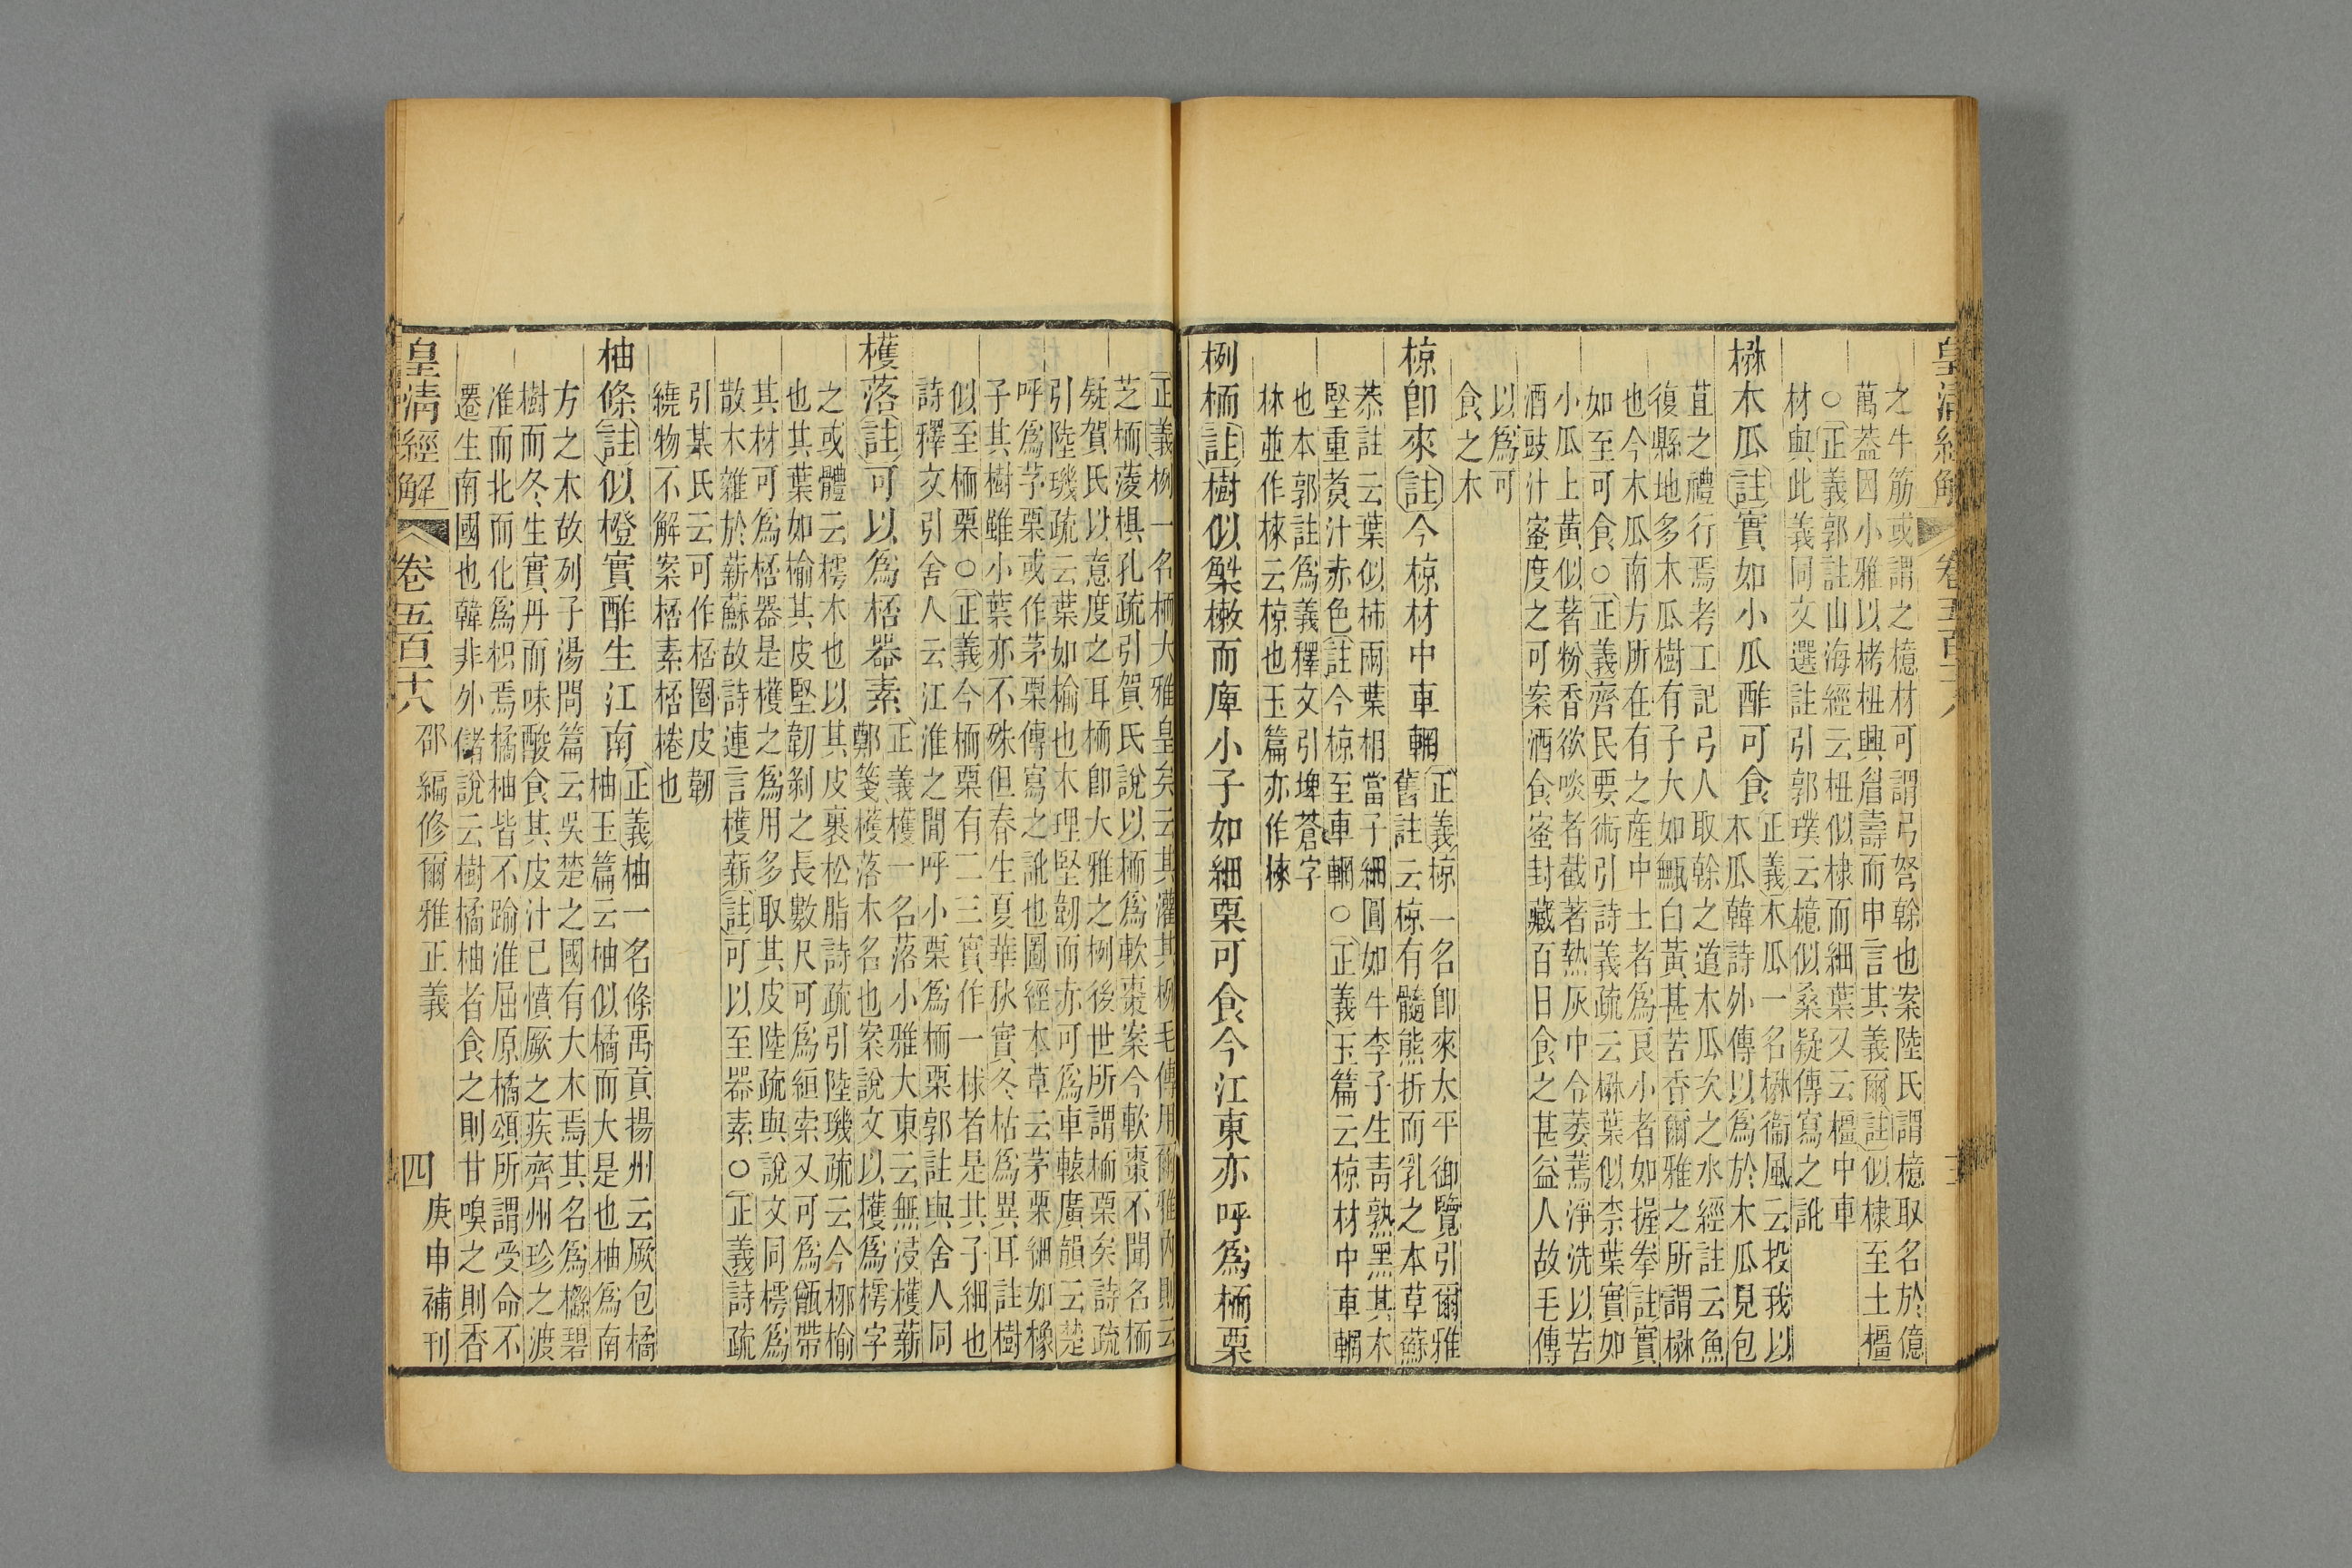 皇清經解 卷五百十八
之牛筋或謂之檍材可謂弓弩榦也案陸氏謂檍取名於億
萬葢因小雅以栲杻興眉壽而申言其義爾註似棣至土橿
○正義郭註山海經云杻似棣而細葉又云橿中車
材與此義同文選註引郭璞云檍似桑疑傳寫之訛
楙木瓜註實如小瓜酢可食
正義木瓜一名楙衞風云投我以
木瓜韓詩外傳以爲於木瓜見包
苴之禮行焉考工記弓人取榦之道木瓜次之水經註云魚
復縣地多木瓜樹有子大如甒白黃甚苦香爾雅之所謂楙
也今木瓜南方所在有之産中土者爲良小者如握拳註實
如至可食○正義齊民要術引詩義疏云楙葉似柰葉實如
小瓜上黃似著粉香欲啖者截著熱灰中令萎蔫淨洗以苦
酒豉汁蜜度之可案酒食蜜封藏百日食之甚益人故毛傳
以爲可
食之木
椋卽來註今椋材中車輞
正義椋一名卽來太平御覽引爾雅
舊註云椋有髓熊折而乳之本草蘇
恭註云葉似柿兩葉相當子細圓如牛李子生靑熟黑其木
堅重煑汁赤色註今椋至車輞○正義玉篇云椋材中車輞
也本郭註爲義釋文引埤蒼字
林並作㯕云椋也玉篇亦作㯕
栵栭註樹似檞樕而庳小子如細栗可食今江東亦呼爲栭栗
正義栵一名栭大雅皇矣云其灌其栵毛傳用爾雅內則云
芝栭蔆椇孔疏引賀氏說以栭爲軟棗案今軟棗不聞名栭
疑賀氏以意度之耳栭卽大雅之栵後世所謂栭栗矣詩疏
引陸璣疏云葉如榆也木理堅韌而赤可爲車轅廣韻云楚
呼爲茅栗或作茅栗傳寫之訛也圖經本草云茅栗細如橡
子其樹雖小葉亦不殊但春生夏華秋實冬枯爲異耳註樹
似至栭栗○正義今栭栗有二三實作一梂者是其子細也
詩釋文引舍人云江淮之閒呼小栗爲栭栗郭註與舍人同
檴落註可以爲桮器素
正義檴一名落小雅大東云無浸檴薪
鄭箋檴落木名也案說文以檴爲樗字
之或體云樗木也以其皮裹松脂詩疏引陸璣疏云今椰榆
也其葉如榆其皮堅韌剝之長數尺可爲絙索又可爲甑帶
其材可爲桮器是檴之爲用多取其皮陸疏與說文同樗爲
散木雜於薪蘇故詩連言檴薪註可以至器素○正義詩疏
引某氏云可作桮圈皮韌
繞物不解案桮素桮棬也
柚條註似橙實酢生江南
正義柚一名條禹貢揚州云厥包橘
柚玉篇云柚似橘而大是也柚爲南
方之木故列子湯問篇云吳楚之國有大木焉其名爲櫾碧
樹而冬生實丹而味酸食其皮汁已憤厥之疾齊州珍之渡
淮而北而化爲枳焉橘柚皆不踰淮屈原橘頌所謂受命不
遷生南國也韓非外儲說云樹橘柚者食之則甘嗅之則香
皇清經解 卷五百十八 邵編修爾雅正義 四 庚申補刊